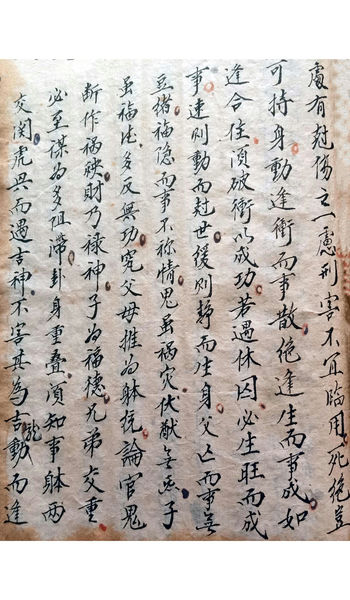 處有尅傷之慮刑害不宜臨用死绝豈
可持身動逢衝而事散绝逢生而事成如
逢合住須破衝以成功若遇休囚必生旺而成
事速则動而尅世缓则靜而生身父亡而事旡
豆绪福隐而事不称情鬼虽祸灾伏猷旡炁子
虽福德多反無功究父母推為躰統論官鬼
断作禍殃財乃禄神子為福德兄弟交重
必至谋為多阻滯卦身重叠須知事躰两
交関虎興而遇吉神不害其為吉龍動而逢